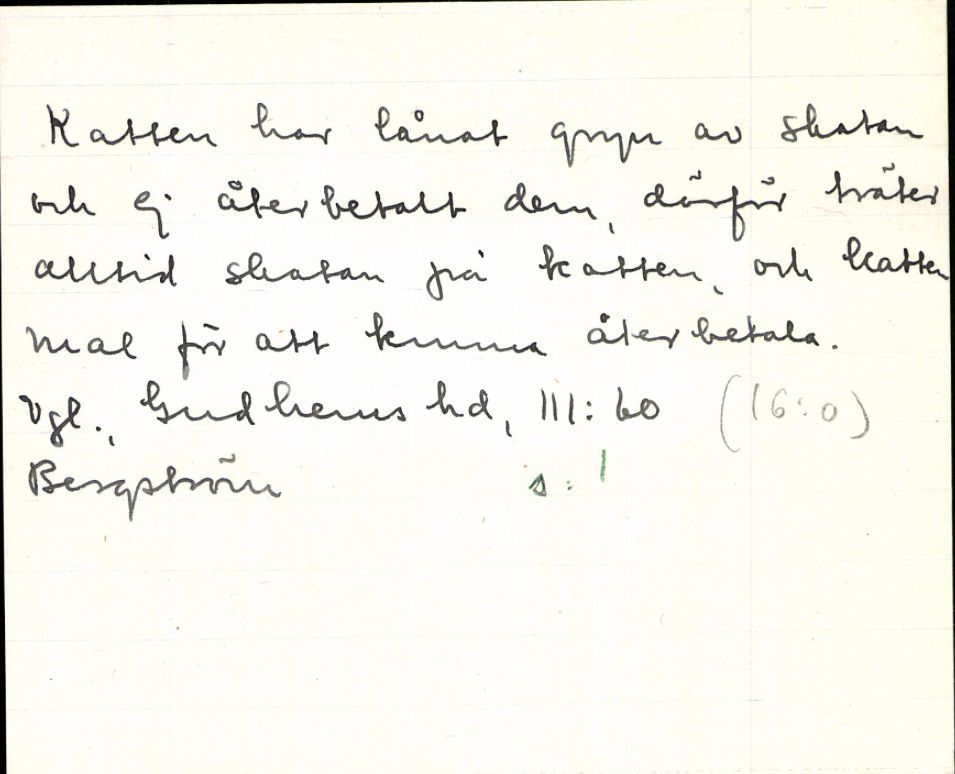 Katten har lånat gryn av skatan
och ej återbetalt dem, därför träter
alltid skatan på katten, och katten
mal för att kunna återbetala.
Vgl., Gudhems hd, III: 60 (16:0)
Bergström s: 1